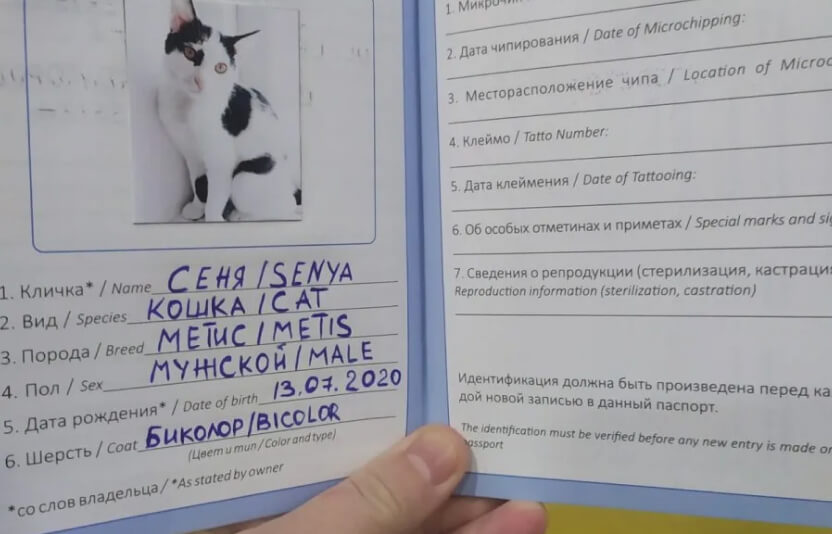 1. Кличка* / Name СЕНЯ / SENYA
2. Вид / Species КОШКА / CAT
3. Порода / Breed МЕТИС / METIS
4. Пол / Sex МУЖСКОЙ / MALE
5. Дата рождения* / Date of birth 13.07.2020
6. Шерсть / Coat БИКОЛОР / BICOLOR
(Цвет и тип / Color and type)
*со слов владельца / *As stated by owner
1.
2. Дата чипирования / Date of Microchipping:
3. Месторасположение чипа / Location of
4. Клеймо / Tatto Number:
5. Дата клеймения / Date of Tattooing:
6. Об особых отметинах и приметах / Special marks and
7. Сведения о репродукции (стерилизация,
Reproduction information (sterilization, castration)
Идентификация должна быть произведена перед
дой новой записью в данный паспорт.
The identification must be verified before any new entry is made